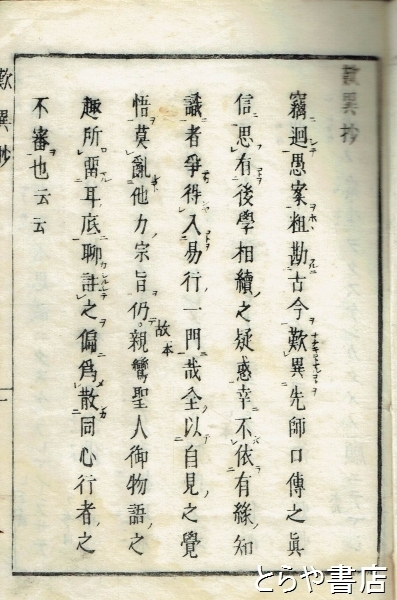 歎異抄
竊廻愚案粗勘古今歎異先師口傳之眞
信思有後學相續之疑惑幸不依有緣知
識者爭得入易行一門哉全以自見之覺
悟莫亂他力宗旨仍故親鸞聖人御物語之
本
趣所留耳底聊註之偏爲散同心行者之
不審也云云
歎異抄
一
とらや書店